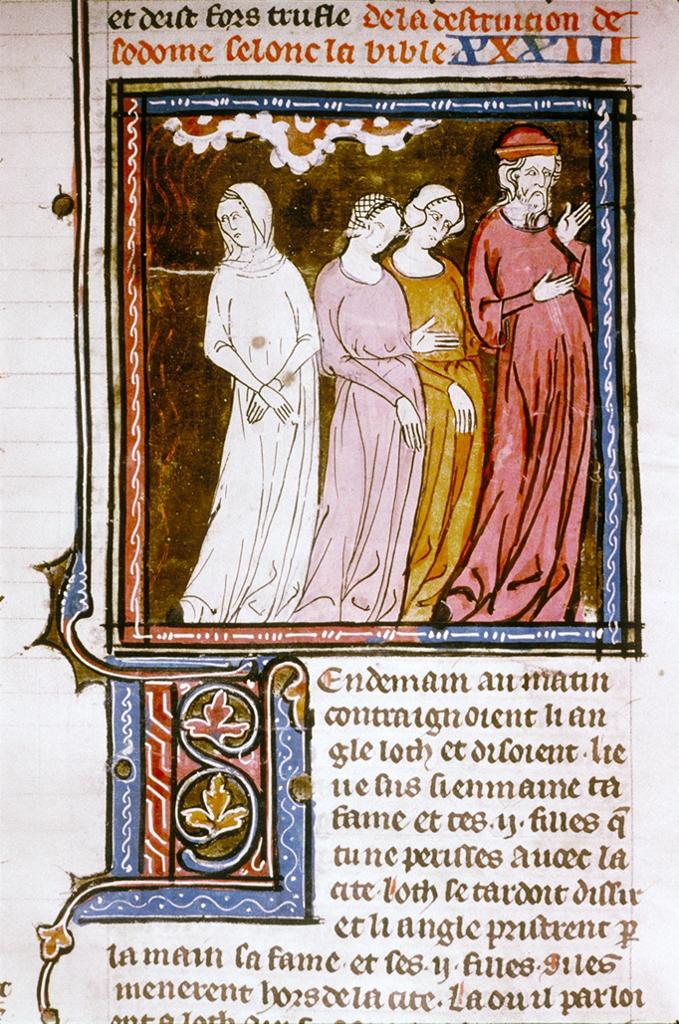 et deist fors trufle De la destruction de
sodome selonc la bible XXXIII
Lendemain au matin
contraignoient li an
gle loth et disoient · lie
ue sus si enmaine ta
fame et tes · ij · filles q̃
tu ne perisses auoec la
cite loth se tardoit dissir
et li angle pristrent ꝑ
la main sa fame · et ses · ij · filles · si les
menerent hors de la cite · La ou il parloi
ent a loth